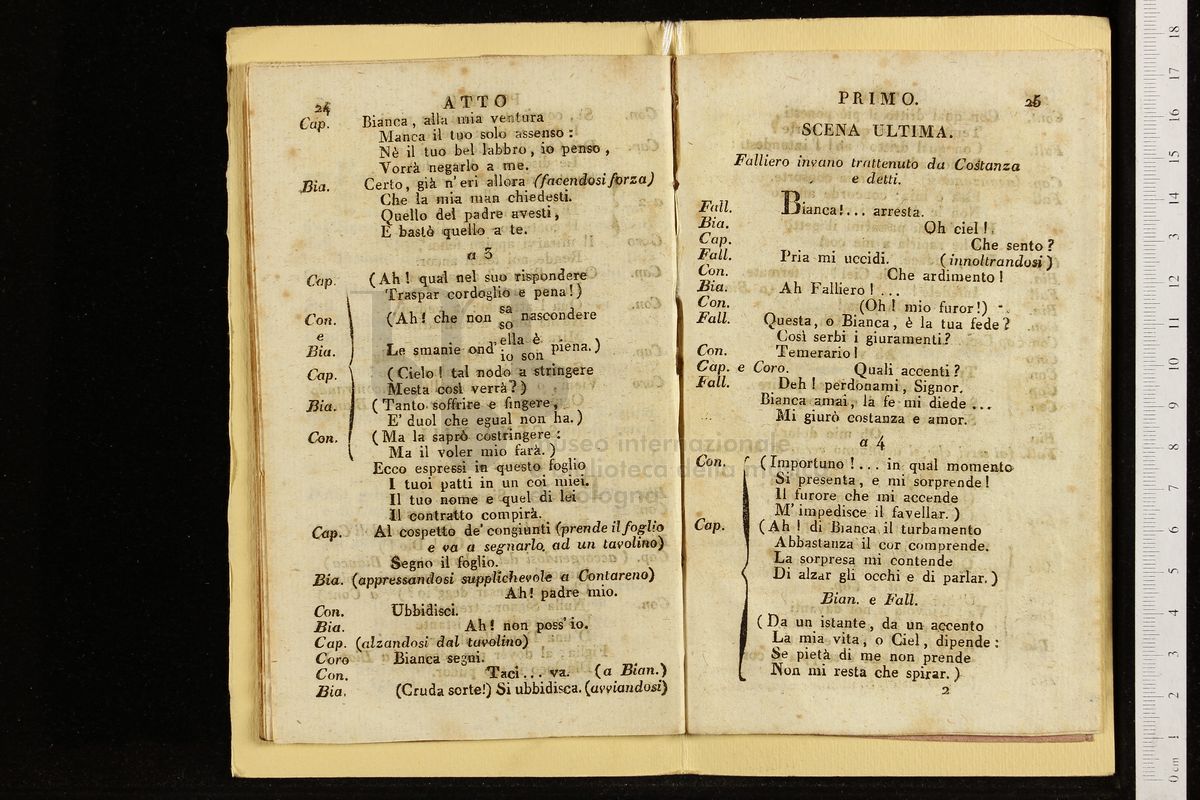 24
ATTO
Cap. Bianca, alla mia ventura
Manca il tuo solo assenso :
Nè il tuo bel labbro, io penso,
Vorrà negarlo a me.
Bia. Certo, già n'eri allora (facendosi forza)
Che la mia man chiedesti.
Quello del padre avesti,
E bastò quello a te.
a 3
Cap. (Ah! qual nel suo rispondere
Traspar cordoglio e pena!)
Con. e Bia. (Ah! che non sa / so nascondere
Le smanie ond' ella è / io son piena.)
Cap. (Cielo! tal nodo a stringere
Mesta così verrà?)
Bia. (Tanto soffrire e fingere,
E' duol che egual non ha.)
Con. (Ma la saprò costringere:
Ma il voler mio farà.)
Ecco espressi in questo foglio
I tuoi patti in un coi miei.
Il tuo nome e quel di lei
Il contratto compirà.
Cap. Al cospetto de' congiunti (prende il foglio
e va a segnarlo ad un tavolino)
Segno il foglio.
Bia. (appressandosi supplichevole a Contareno)
Ah! padre mio.
Con. Ubbidisci.
Bia. Ah! non poss' io.
Cap. (alzandosi dal tavolino)
Coro Bianca segni.
Con. Taci... va. (a Bian.)
Bia. (Cruda sorte!) Si ubbidisca. (avviandosi)
PRIMO.
25
SCENA ULTIMA.
Falliero invano trattenuto da Costanza
e detti.
Fall. Bianca!... arresta.
Bia. Oh ciel!
Cap. Che sento?
Fall. Pria mi uccidi. (innoltrandosi)
Con. Che ardimento!
Bia. Ah Falliero! ...
Con. (Oh! mio furor!)
Fall. Questa, o Bianca, è la tua fede?
Così serbi i giuramenti?
Con. Temerario!
Cap. e Coro. Quali accenti?
Fall. Deh! perdonami, Signor.
Bianca amai, la fe mi diede ...
Mi giurò costanza e amor.
a 4
Con. (Importuno!... in qual momento
Si presenta, e mi sorprende!
Il furore che mi accende
M' impedisce il favellar.)
Cap. (Ah! di Bianca il turbamento
Abbastanza il cor comprende.
La sorpresa mi contende
Di alzar gli occhi e di parlar.)
Bian. e Fall.
(Da un istante, da un accento
La mia vita, o Ciel, dipende:
Se pietà di me non prende
Non mi resta che spirar.)
2
museo internazionale
biblioteca della musica
bologna
0 cm 1 2 3 4 5 6 7 8 9 10 11 12 13 14 15 16 17 18